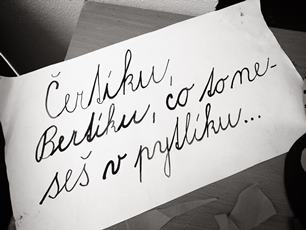 Čertíku,
Bertíku, co to ne-
seš v pytlíku...